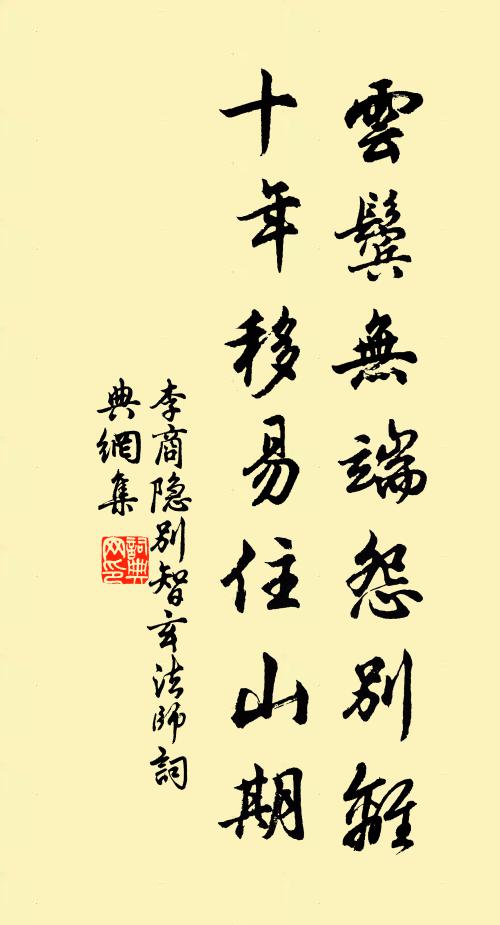 雲鬢無端怨別離
十年移易住山期
李商隐別智玄法師詞
典網集
詞典
网印